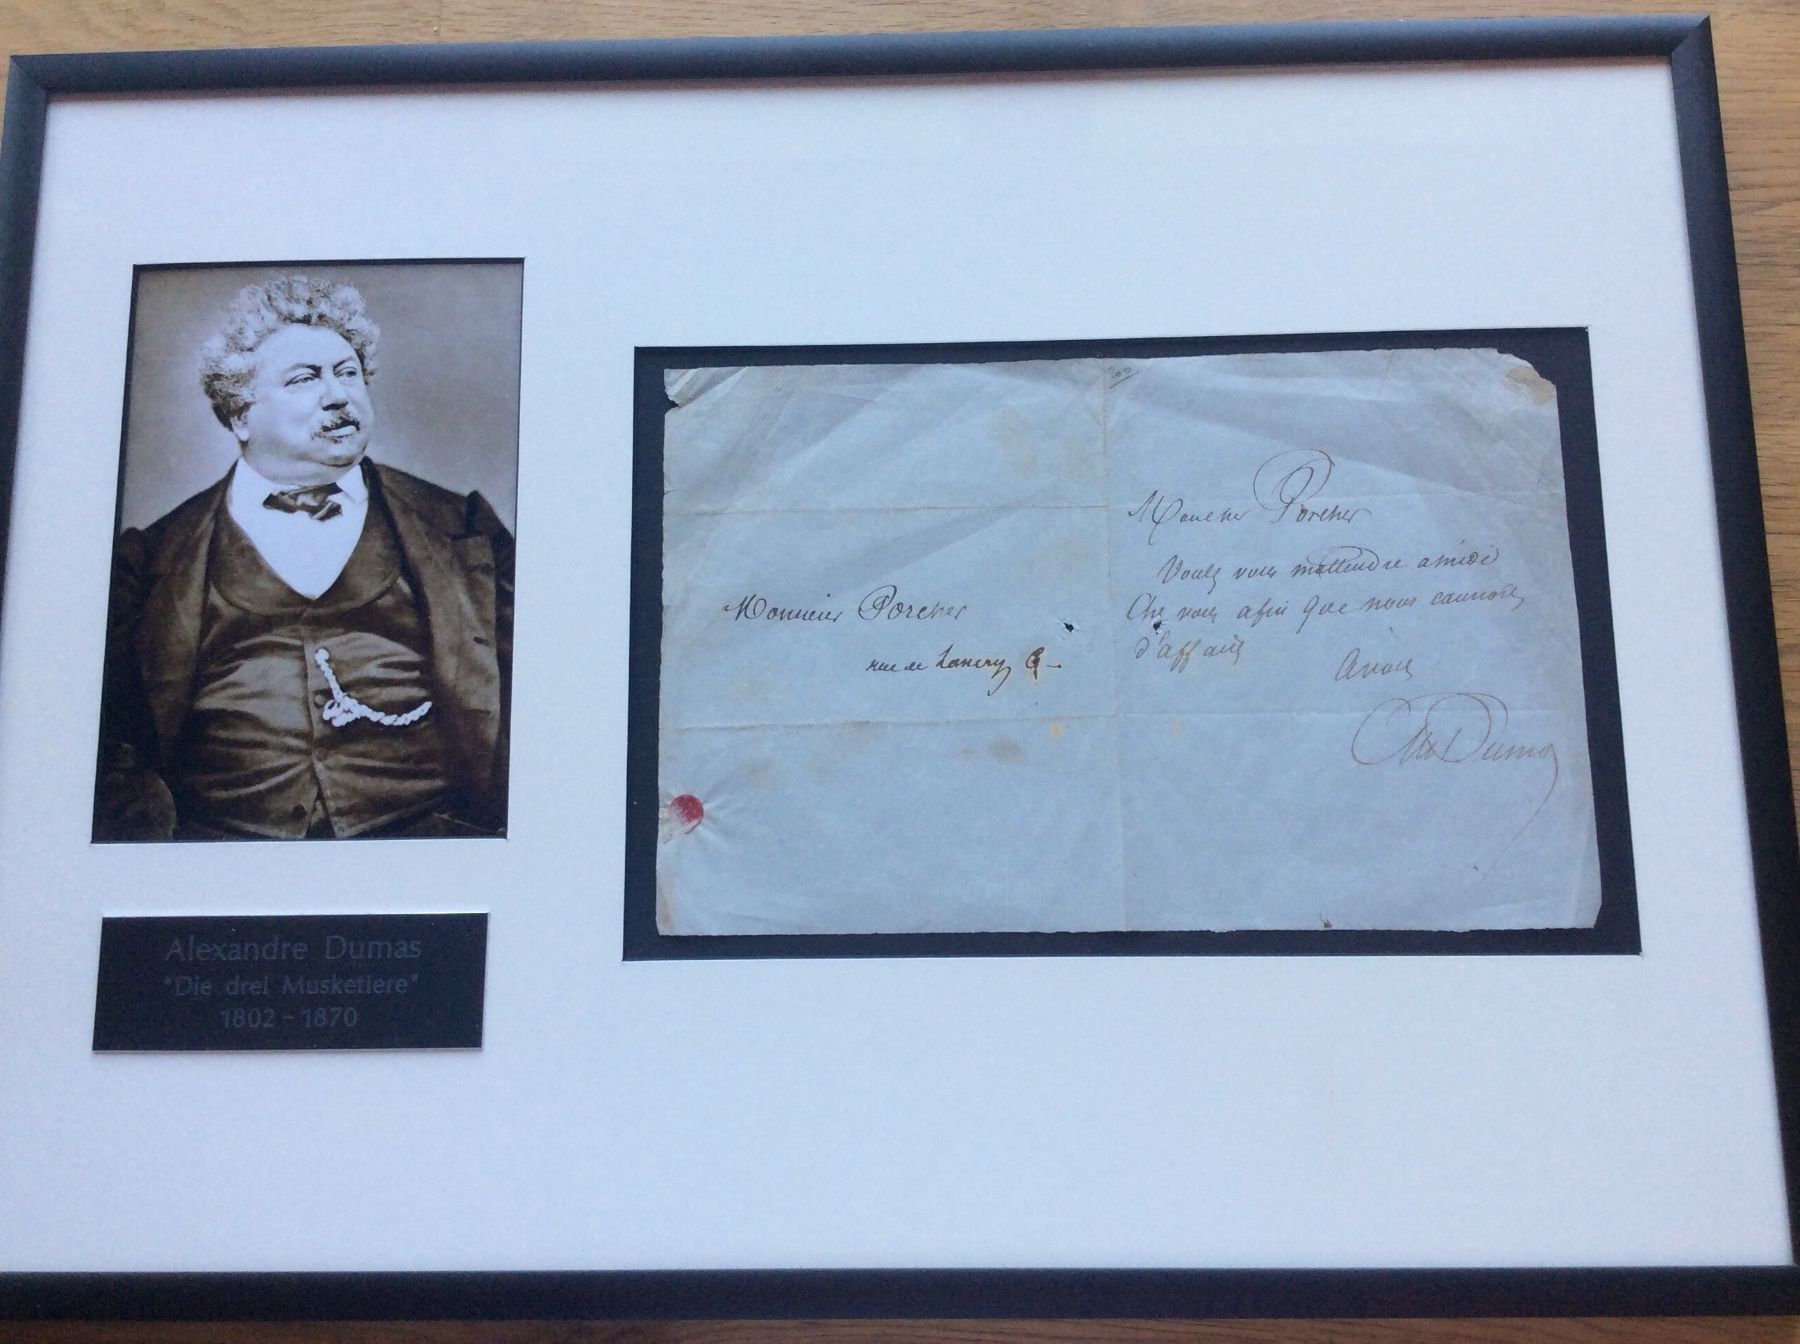 Alexandre Dumas
"Die drei Musketiere"
1802 - 1870
Monsieur Porcher
rue de Lancry 6
200
Mon cher Porcher
Voulez vous m'attendre a midi
Chez vous afin que nous causions
d'affaires
a vous
Alex Dumas